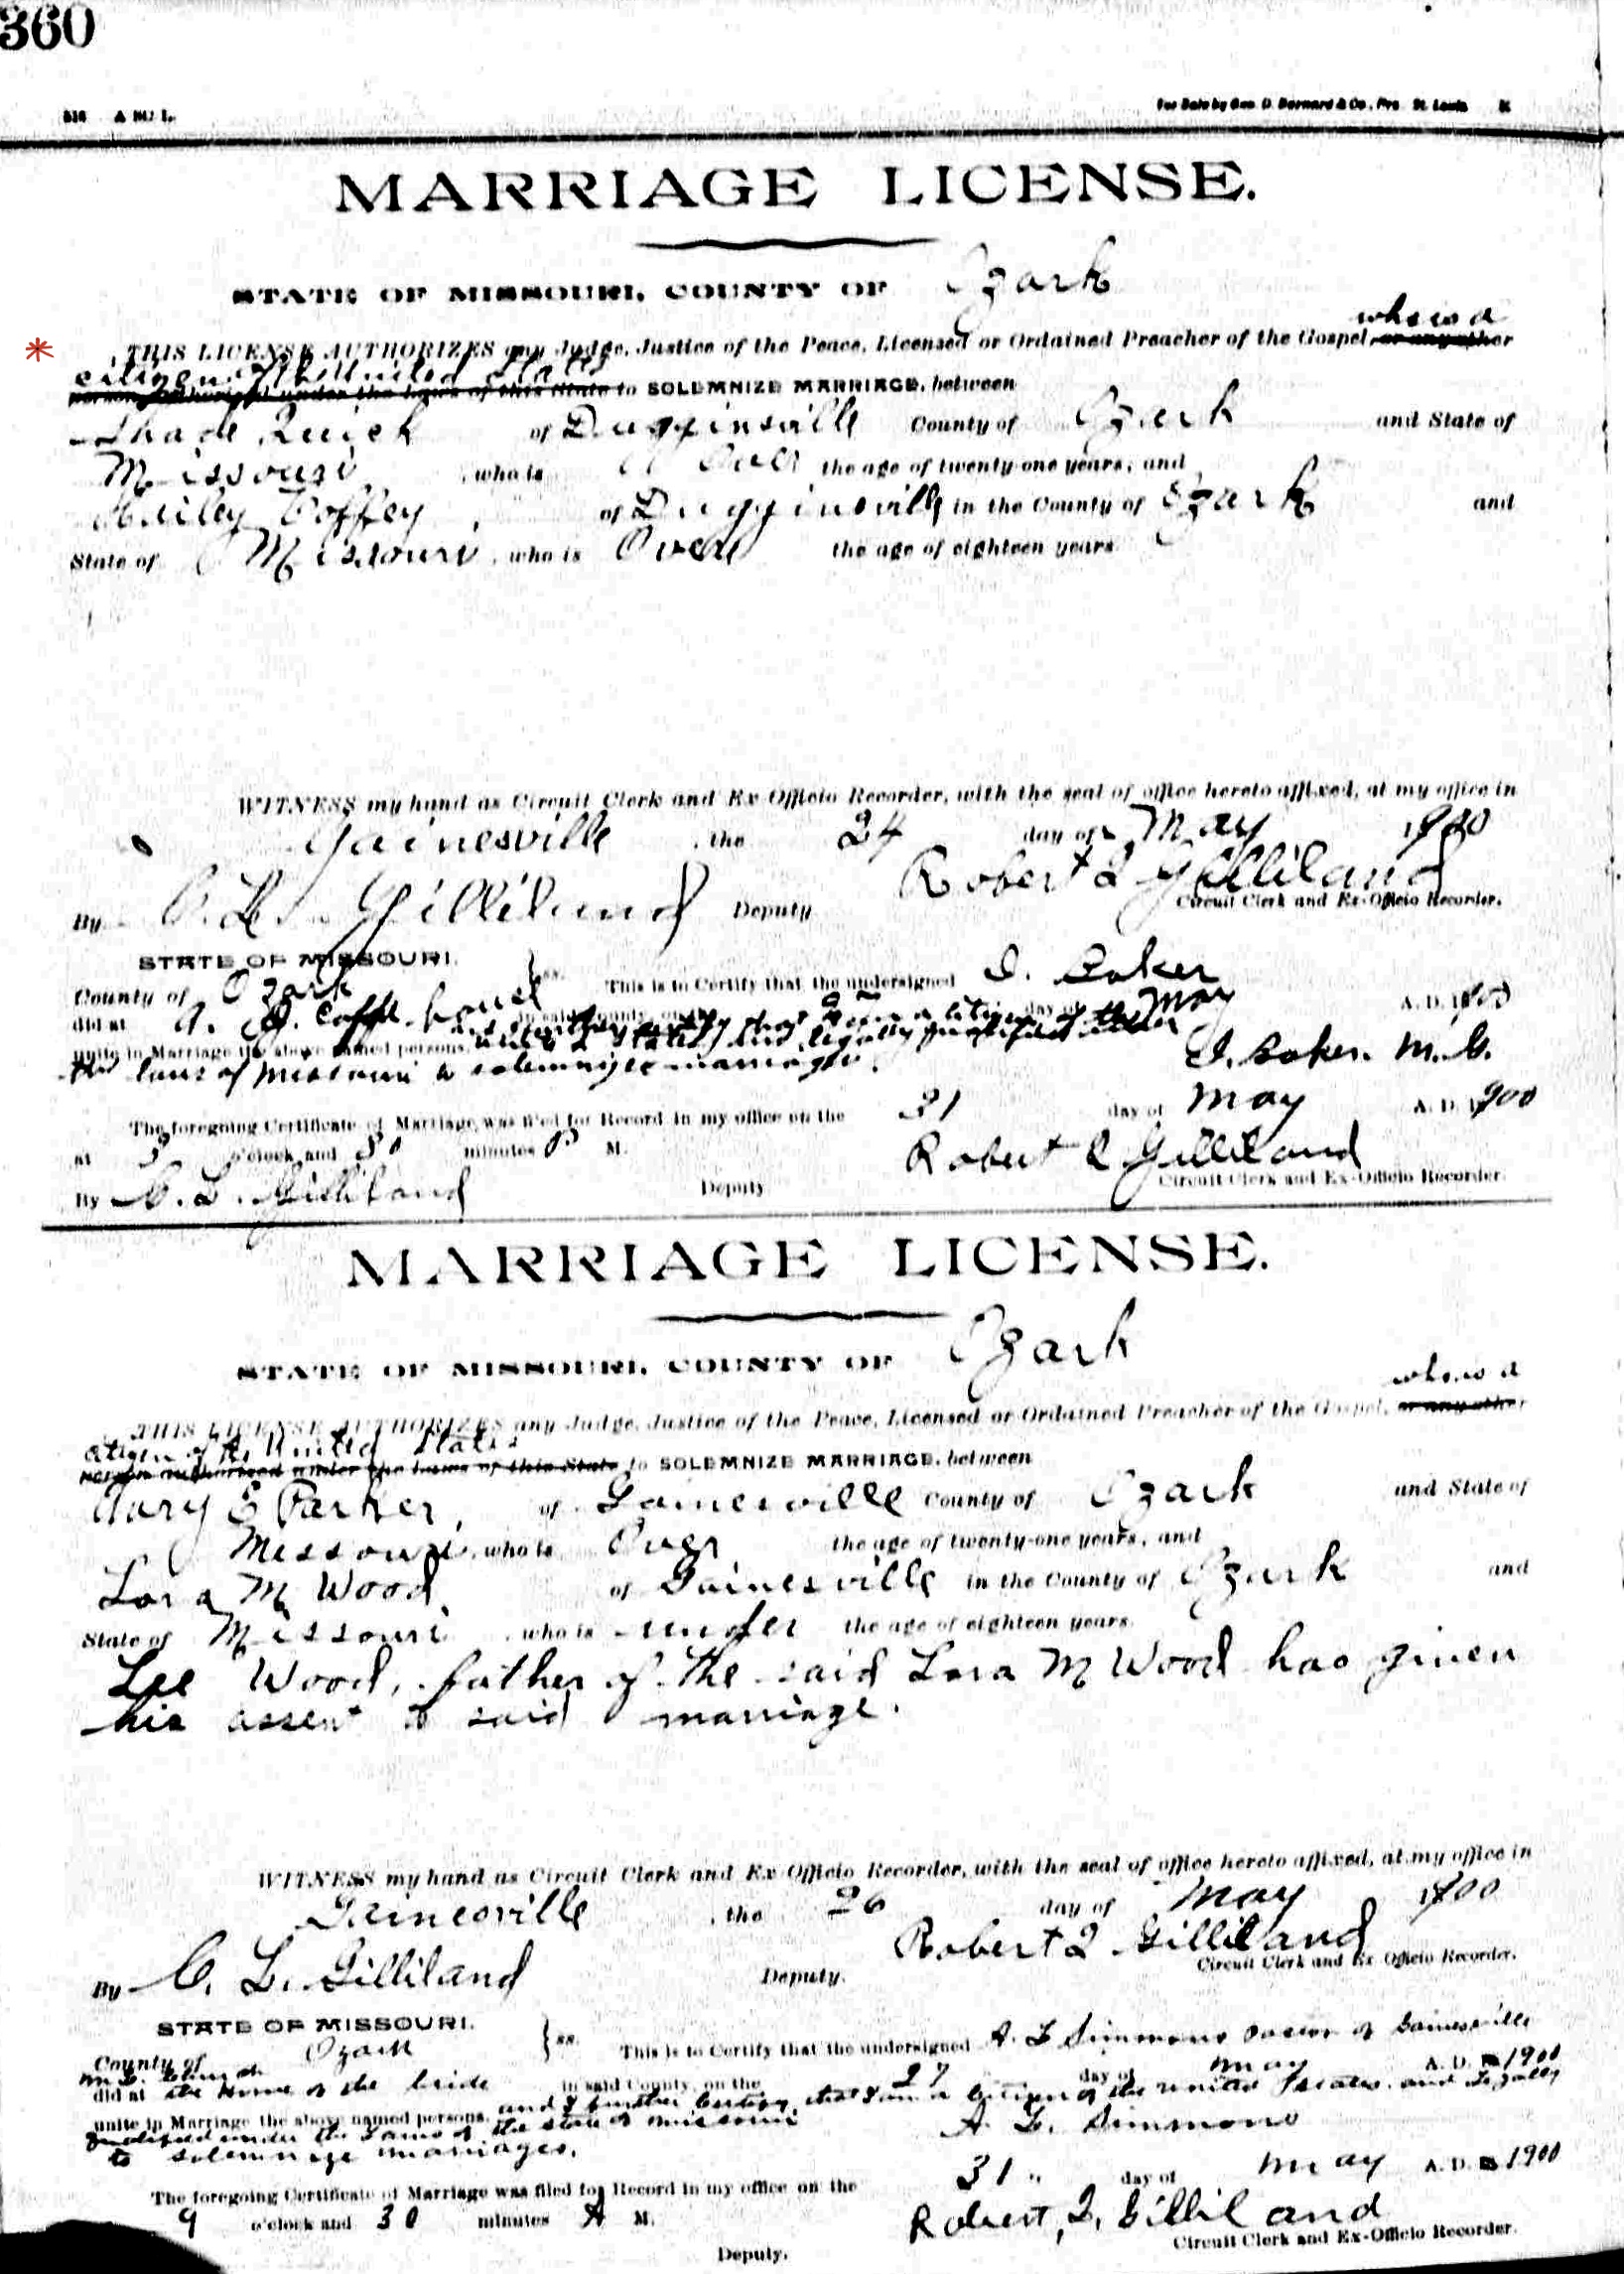 360
For Sale by Geo. D. Barnard & Co., Pro. St. Louis
MARRIAGE LICENSE.
STATE OF MISSOURI, COUNTY OF Ozark
who is a
THIS LICENSE AUTHORIZES any Judge, Justice of the Peace, Licensed or Ordained Preacher of the Gospel, or any other
citizen of the United States
person authorized under the laws of this State to SOLEMNIZE MARRIAGE, between
Shade Quick of Dugginsville County of Ozark and State of
Missouri, who is Over the age of twenty-one years, and
Coffey of Dugginsville in the County of Ozark and
State of Missouri, who is Over the age of eighteen years
WITNESS my hand as Circuit Clerk and Ex-Officio Recorder, with the seal of office hereto affixed, at my office in
Gainesville, the 24 day of May 1900
Robert Q Gilliland
Circuit Clerk and Ex-Officio Recorder.
By C. L. Gilliland Deputy
STATE OF MISSOURI, ss.
County of Ozark This is to Certify that the undersigned Baker
did at in said County, on the day of May A. D. 1900
unite in Marriage the above named persons, and further certify that I am a citizen of the United States and legally qualified under
the laws of Missouri to solemnize marriages.
Baker. M. G.
The foregoing Certificate of Marriage was filed for Record in my office on the 31 day of May A. D. 1900
at o'clock and 30 minutes P M.
Robert Q Gilliland
Circuit Clerk and Ex-Officio Recorder.
By C. L. Gilliland Deputy
MARRIAGE LICENSE.
STATE OF MISSOURI, COUNTY OF Ozark
who is a
THIS LICENSE AUTHORIZES any Judge, Justice of the Peace, Licensed or Ordained Preacher of the Gospel, or any other
citizen of the United States
person authorized under the laws of this State to SOLEMNIZE MARRIAGE, between
Gary E Parker, of Gainesville County of Ozark and State of
Missouri, who is Over the age of twenty-one years, and
Lora M Wood of Gainesville in the County of Ozark and
State of Missouri, who is under the age of eighteen years.
Lee Wood, father of the said Lora M Wood has given
his assent to said marriage.
WITNESS my hand as Circuit Clerk and Ex-Officio Recorder, with the seal of office hereto affixed, at my office in
Gainesville, the 26 day of May 1900
Robert Q Gilliland
Circuit Clerk and Ex-Officio Recorder.
By C. L. Gilliland Deputy.
STATE OF MISSOURI, ss.
County of Ozark This is to Certify that the undersigned A. L Simmons Pastor of Gainesville
M. E. Church
did at the Home of the bride in said County, on the 27 day of May A. D. 1900
unite in Marriage the above named persons, and I further certify, that I am a citizen of the United States, and Legally
qualified under the Laws of the state of Missouri
to solemnize marriages.
A. L. Simmons
The foregoing Certificate of Marriage was filed for Record in my office on the 31 day of May A. D. 1900
9 o'clock and 30 minutes A M.
Robert Q. Gilliland
Circuit Clerk and Ex-Officio Recorder.
Deputy.